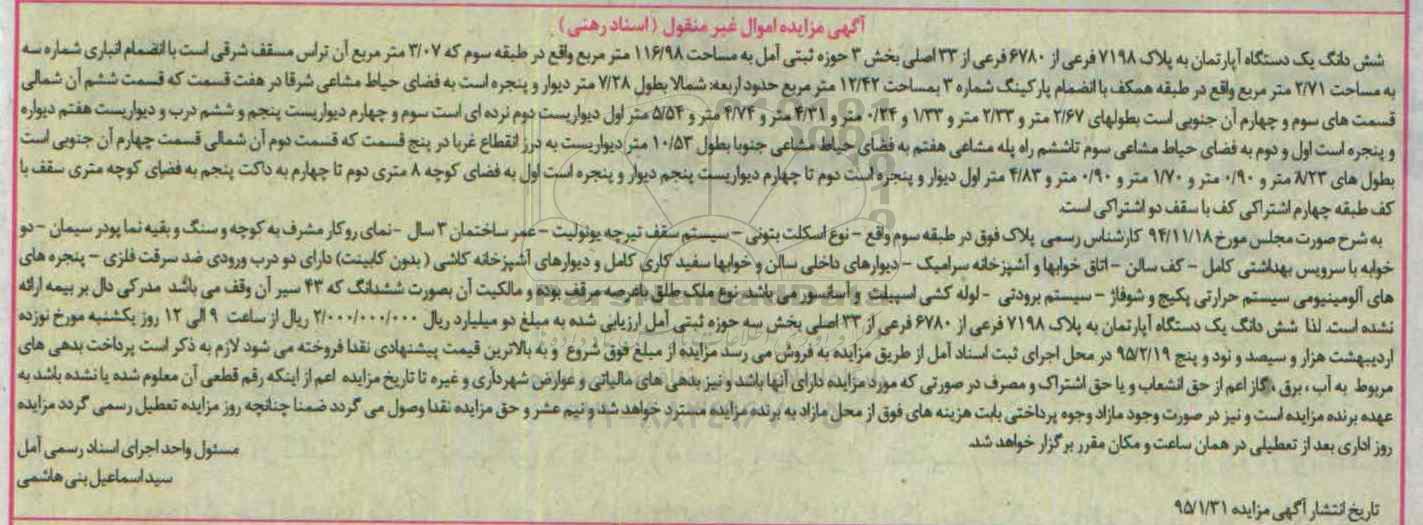 آگهی مزایده اموال غیر منقول (اسناد رهنی)
شش دانگ یک دستگاه آپارتمان به پلاک ۷۱۹۸ فرعی از ۶۷۸۰ فرعی از ۳۳ اصلی بخش ۳ حوزه ثبتی آمل به مساحت ۱۱۶/۹۸ متر مربع واقع در طبقه سوم که ۳/۰۷ متر مربع آن تراس مسقف شرقی است با انضمام انباری شماره سه
به مساحت ۲/۷۱ متر مربع واقع در طبقه همکف با انضمام پارکینگ شماره ۳ بمساحت ۱۲/۴۲ متر مربع حدود اربعه: شمالا بطول ۷/۲۸ متر دیوار و پنجره است به فضای حیاط مشاعی شرقا در هفت قسمت که قسمت ششم آن شمالی
قسمت های سوم و چهارم آن جنوبی است بطولهای ۲/۶۷ متر و ۲/۳۳ متر و ۱/۳۳ و ۰/۲۴ متر و ۴/۳۱ متر و ۴/۷۴ متر و ۵/۵۴ متر اول دیواریست دوم نرده ای است سوم و چهارم دیواریست پنجم و ششم درب و دیواریست هفتم دیواره
و پنجره است اول و دوم به فضای حیاط مشاعی سوم تاششم راه پله مشاعی هفتم به فضای حیاط مشاعی جنوبا بطول ۱۰/۵۳ متر دیواریست به درز انقطاع غربا در پنج قسمت که قسمت دوم آن شمالی قسمت چهارم آن جنوبی است
بطول های ۸/۲۳ متر و ۰/۹۰ متر و ۱/۷۰ متر و ۰/۹۰ متر و ۴/۸۳ متر اول دیوار و پنجره است دوم تا چهارم دیواریست پنجم دیوار و پنجره است اول به فضای کوچه ۸ متری دوم تا چهارم به داکت پنجم به فضای کوچه متری سقف با
کف طبقه چهارم اشتراکی کف با سقف دو اشتراکی است.
به شرح صورت مجلس مورخ ۹۴/۱۱/۱۸ کارشناس رسمی پلاک فوق در طبقه سوم واقع - نوع اسکلت بتونی - سیستم سقف تیرچه یونولیت - عمر ساختمان ۳ سال - نمای روکار مشرف به کوچه و سنگ و بقیه نما پودر سیمان - دو
خوابه با سرویس بهداشتی کامل - کف سالن - اتاق خوابها و آشپزخانه سرامیک - دیوارهای داخلی سالن و خوابها سفید کاری کامل و دیوارهای آشپزخانه کاشی (بدون کابینت) دارای دو درب ورودی ضد سرقت فلزی - پنجره های
های آلومینیومی سیستم حرارتی پکیج و شوفاژ - سیستم برودتی - لوله کشی اسپیلت و آسانسور می باشد. نوع ملک طلق باعرصه موقف بوده و مالکیت آن بصورت ششدانگ که ۴۳ سیر آن وقف می باشد مدرکی دال بر بیمه ارائه
نشده است. لذا شش دانگ یک دستگاه آپارتمان به پلاک ۷۱۹۸ فرعی از ۶۷۸۰ فرعی از ۳۳ اصلی بخش سه حوزه ثبتی آمل ارزیابی شده به مبلغ دو میلیارد ریال ۲/۰۰۰/۰۰۰/۰۰۰ ریال از ساعت ۹ الی ۱۲ روز یکشنبه مورخ نوزده
اردیبهشت هزار و سیصد و نود و پنج ۹۵/۲/۱۹ در محل اجرای ثبت اسناد آمل از طریق مزایده به فروش می رسد مزایده از مبلغ فوق شروع و به بالاترین قیمت پیشنهادی نقدا فروخته می شود لازم به ذکر است پرداخت بدهی های
مربوط به آب، برق، گاز اعم از حق انشعاب و یا حق اشتراک و مصرف در صورتی که مورد مزایده دارای آنها باشد و نیز بدهی های مالیاتی و عوارض شهرداری و غیره تا تاریخ مزایده اعم از اینکه رقم قطعی آن معلوم شده یا نشده باشد به
عهده برنده مزایده است و نیز در صورت وجود مازاد وجوه پرداختی بابت هزینه های فوق از محل مازاد به برنده مزایده مسترد خواهد شد و نیم عشر و حق مزایده نقدا وصول می گردد ضمنا چنانچه روز مزایده تعطیل رسمی گردد مزایده
روز اداری بعد از تعطیلی در همان ساعت و مکان مقرر برگزار خواهد شد.
مسئول واحد اجرای اسناد رسمی آمل
سید اسماعیل بنی هاشمی
تاریخ انتشار آگهی مزایده ۹۵/۱/۳۱